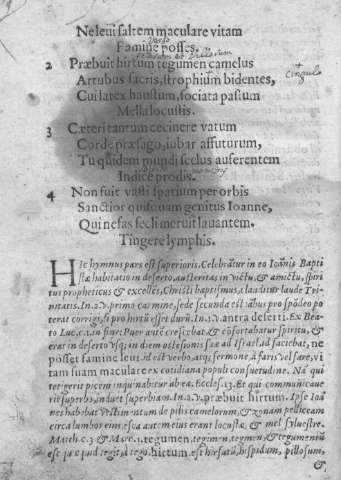 Ne leui saltem maculare vitam
Famine posses.
2 Præbuit hirtum tegumen camelus
Artubus sacris, strophium bidentes,
cingulo
Cui latex haustum, sociata pastum
Mella locustis.
3 Cæteri tantum cecinere vatum
Corde præsago, iubar affuturum,
Tu quidem mundi scelus auferentem
Indice prodis.
4 Non fuit vasti spatium per orbis
Sanctior quisquam genitus Ioanne,
Qui nefas secli meruit lauantem.
Tingere lymphis.
HIc hymnus pars est superioris. Celebrātur in eo Ioānis Bapti
stæ habitatio in deserto, austeritas in victu, & amictu, spiri
tus propheticus & excellēs, Christi baptismus, clauditur laude Tri-
nitatis. In. 2. v. primo carmine, sede secunda est
poterat corrigi, si pro hirtū esset durū. In. 2. v. antra deserti. Ex Bea-
to Luc. c. 1. in fin: Puer autē crescebat, & cōfortabatur spiritu, &
erat in desertis vsq; in diem ostēsionis suæ ad Israel. id faciebat, ne
posset famine leui. id est verbo, atq; sermone à faris vel fare, vi
tam suam maculare ex cotidiana populi consuetudine. Nā qui
tetigerit picem inquinabitur ab ea. Eccles. 13. Et qui communicaue
rit superbo, induet superbiam. In. 2. v. præbuit hirtum. Ipse Ioā
nes habebat vestimentum de pilis camelorum, & zonam pelliceam
circa lumbos eius, esca autem eius erant locustæ, & mel syluestre.
Matth. c. 3. & Marc. 1. tegumen, tegimen, tegmen, & tegumentū
est id quod tegit, à tego. hirtum, est hirsutū, hispidum, pillosum,
&